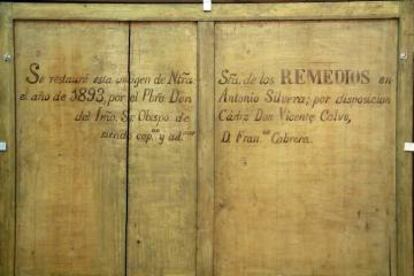 Se restauró esta imagen de Ntrã. Sra. de los REMEDIOS en
el año de 1893, por el Pbro. Don Antonio Silvera; por disposicion
del Iḿo. Sr. Obispo de Cádiz Don Vicente Calvo,
siendo cap.ⁿ y ad.ᵒʳ D. Fran.ᶜᵒ Cabrera.